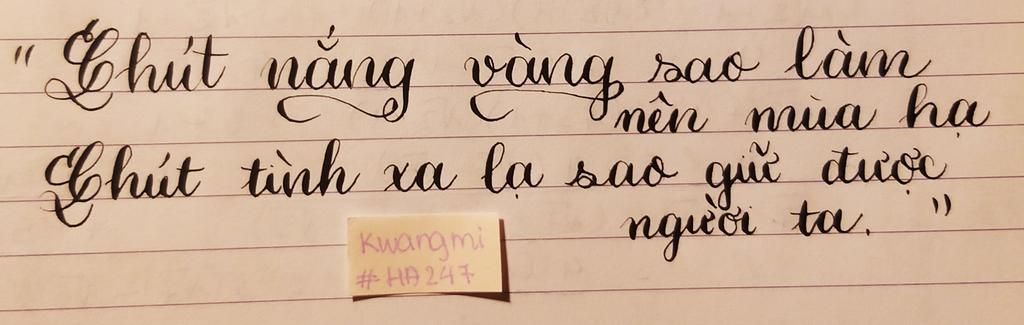 " Chút nắng vàng sao làm
nên mùa hạ
Chút tình xa lạ sao giữ được
người ta. "
Kwangmi
#HA247